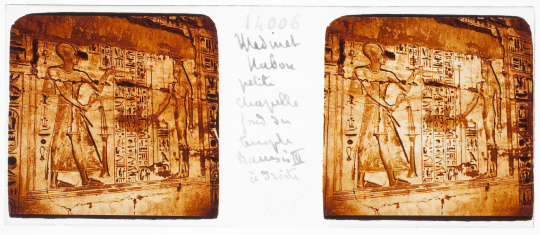 14006
Medinet
Habou
petite
chapelle
fond du
Temple
Ramsès III
à Droite